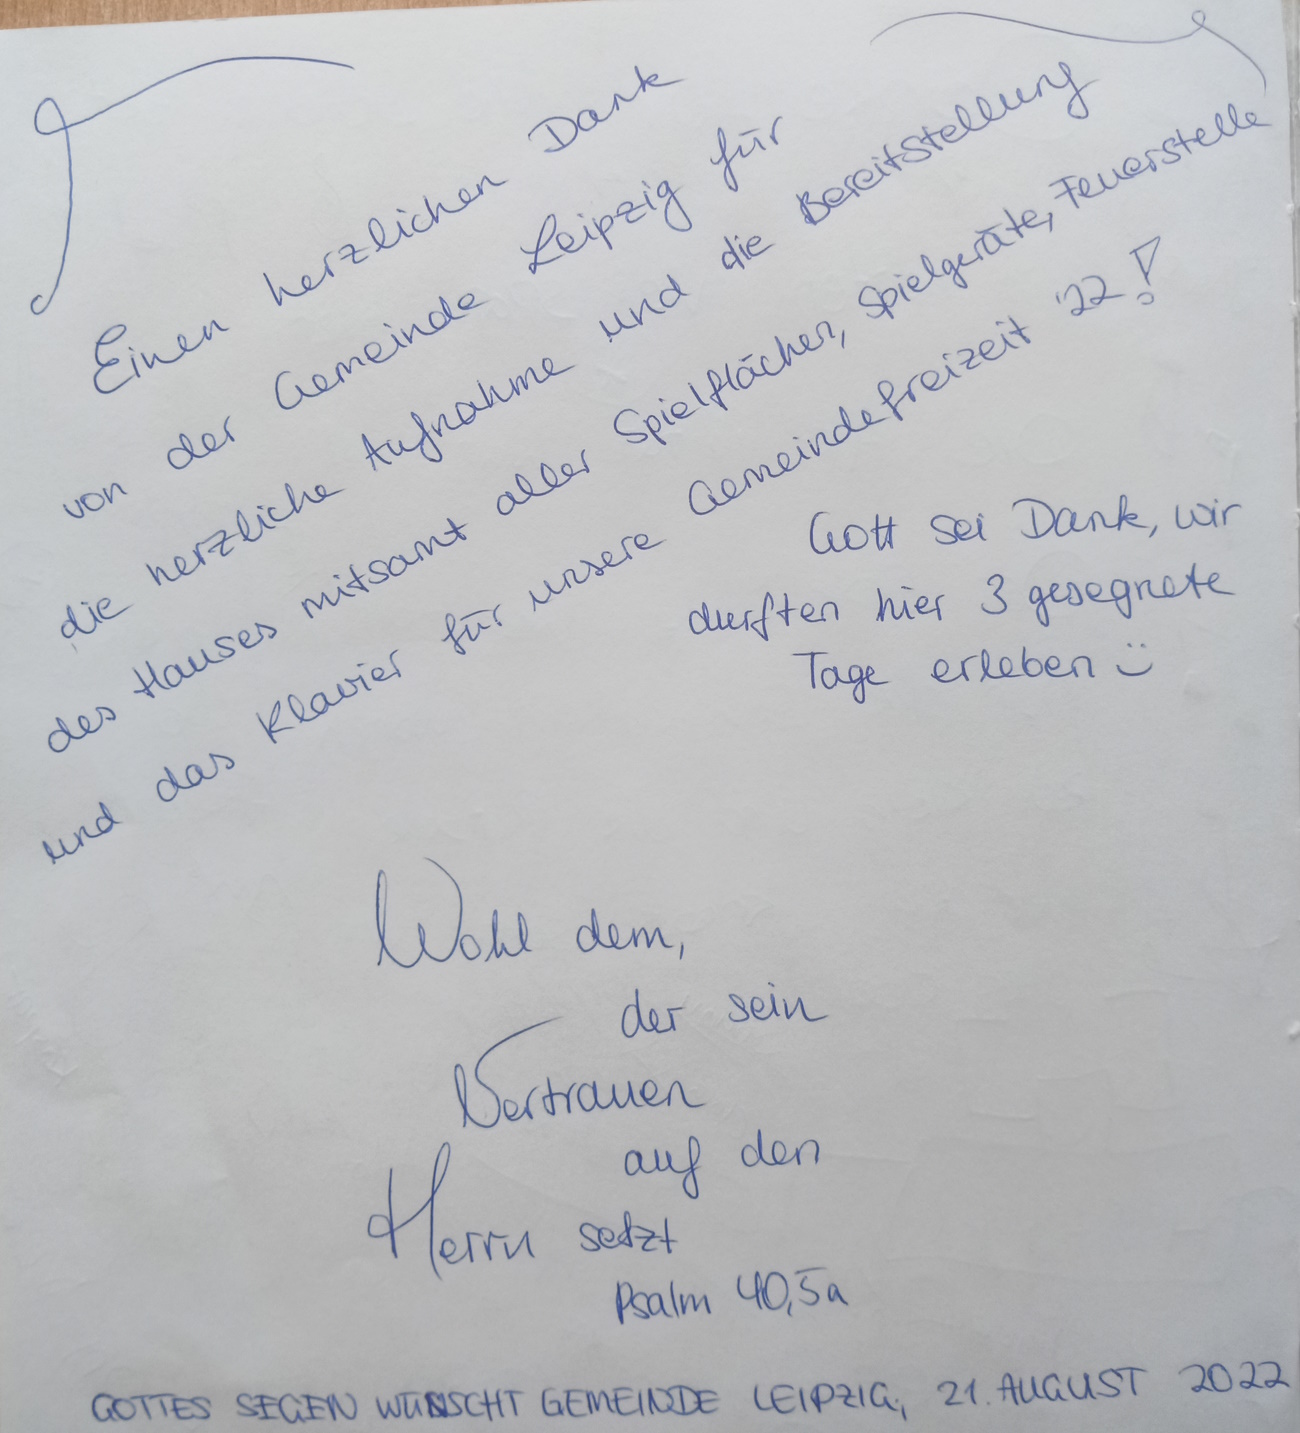 Einen herzlichen Dank
von der Gemeinde Leipzig für
die herzliche Aufnahme und die Bereitstellung
des Hauses mitsamt aller Spielflächen, Spielgeräte, Feuerstelle
und das Klavier für unsere Gemeindefreizeit '22!
Gott sei Dank, wir
durften hier 3 gesegnete
Tage erleben ü
Wohl dem,
der sein
Vertrauen
auf den
Herrn setzt
Psalm 40,5a
GOTTES SEGEN WÜNSCHT GEMEINDE LEIPZIG, 21. AUGUST 2022